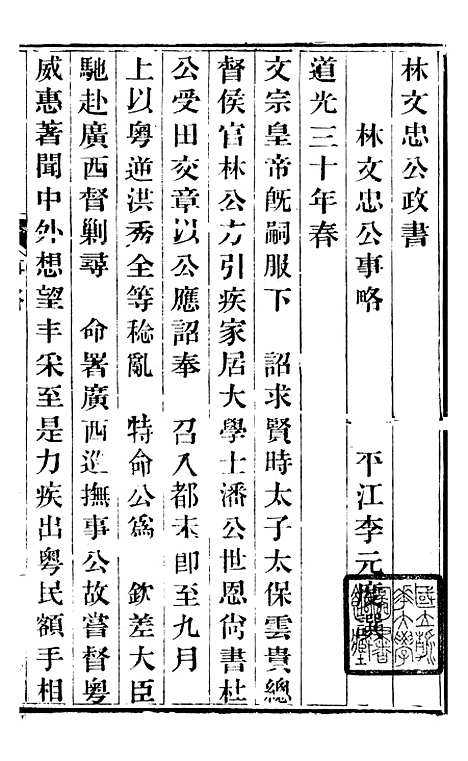 林文忠公政書
林文忠公事略 平江李元度撰
道光三十年春
文宗皇帝既嗣服下 詔求賢時太子太保雲貴總
督侯官林公方引疾家居大學士潘公世恩尙書杜
公受田交章以公應詔奉 召入都未卽至九月
上以粵逆洪秀全等稔亂 特命公爲 欽差大臣
馳赴廣西督剿尋 命署廣西巡撫事公故嘗督粵
威惠著聞中外想望丰采至是力疾出粵民額手相